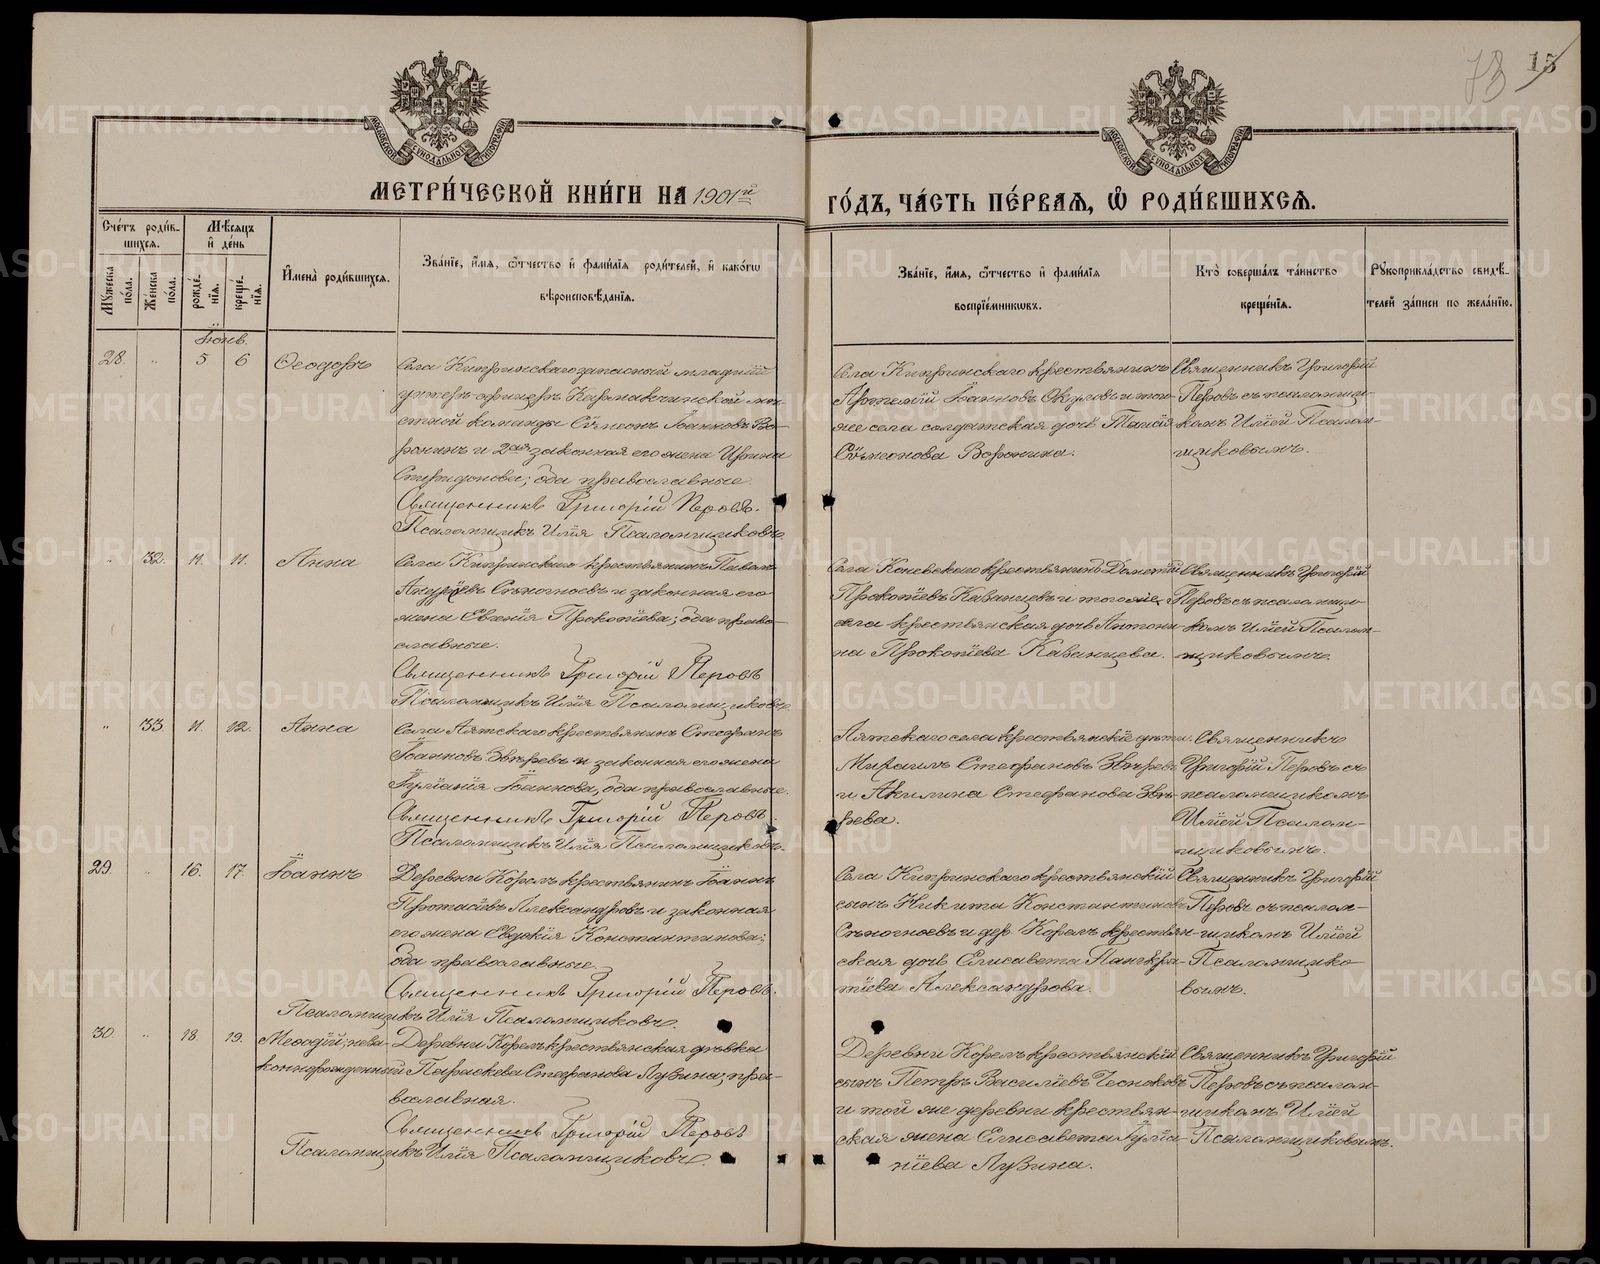 73 15
МЕТРИ́ЧЕСКОЙ КНИ́ГИ НА 1901й
ГО́ДЪ, ЧА́СТЬ ПЕ́РВАЯ, Ѽ РОДИ́ВШИХСЯ.
Сче́тъ роди́в-
шихся.
Мꙋжеска по́ла.
Же́нска по́ла.
Мѣ́сяцъ
и҆ де́нь
рожде́-
нїя.
креще́-
нїя.
И҆мена̀ роди́вшихся.
Зва́нїе, и҆́мя, ѻ҆́тчество и҆ фами́лїя роди́телей, и҆ како́гѡ
вѣроисповѣ́данїя.
Зва́нїе, и҆́мя, ѻ҆́тчество и҆ фами́лїя
воспрїе́мникѡвъ.
Кто̀ соверша́лъ та́инство
креще́нїя.
Рꙋкоприкла́дство свидѣ́-
телей за́писи по жела́нїю.
Іюнь.
28. „ 5 6 Ѳеодоръ
Села Кипринскаго запасный младшій
унтеръ-офицеръ Камы
стной команды Сѵмеонъ Іоанновъ Во-
ронинъ и 2ая законная его жена Ирина
Спиридонова; оба православные.
Священникъ Григорій Перовъ.
Псаломщикъ Илія Псаломщиковъ
Села Кипринскаго крестьянинъ
Артемій Іоанновъ Окуловъ и того-
же села солдатская дочь Таисія
Сѵмеонова Воронина.
Священникъ Григорій
Перовъ съ псаломщи-
комъ Иліей Псалом-
щиковымъ.
„ 32. 11. 11. Анна
Села Кипринскаго крестьянинъ Павелъ
Андреевъ Стъногновъ и законная его
жена Евгенія Прокопіева; оба право-
славные.
Священникъ Григорій Перовъ
Псаломщикъ Илія Псаломщиковъ.
Села Коневскаго крестьянинъ Дометій
Прокопіевъ Казанцевъ и того же
села крестьянская дочь Антони-
на Прокопіева Казанцева.
Священникъ Григорій
Перовъ съ псаломщи-
комъ Иліей Псалом-
щиковымъ.
„ 33. 11. 12. Анна
Села Аятскаго крестьянинъ Стефанъ
Іоанновъ Звѣревъ и законная его жена
Іуліанія Іоаннова, оба православные.
Священникъ Григорій Перовъ.
Псаломщикъ Илія Псаломщиковъ.
Аятскаго села крестьянскіе дѣти:
Михаилъ Стефановъ Звѣревъ
и Акилина Стефанова Звѣ-
рева.
Священникъ
Григорій Перовъ съ
псаломщикомъ
Иліей Псалом-
щиковымъ.
29. „ 16. 17. Іоаннъ
Деревни Корелъ крестьянинъ Іоаннъ
Протасіевъ Александровъ и законная
его жена Евдокія Константинова;
оба православные.
Священникъ Григорій Перовъ.
Псаломщикъ Илія Псаломщиковъ.
Села Кипринскаго крестьянскій
сынъ Никита Константиновъ
и дер. Корелъ крестьян-
ская дочь Елисавета Панкра-
тіева Александрова.
Священникъ Григорій
Перовъ съ псалом-
щикомъ Иліей
Псаломщико-
вымъ.
30. „ 18. 19. Меѳодій; неза-
коннорожденный
Деревни Корелъ крестьянская дѣвка
Параскева Стефанова Лузина; пра-
вославная.
Священникъ Григорій Перовъ
Псаломщикъ Илія Псаломщиковъ.
Деревни Корелъ крестьянскій
сынъ Петръ Василіевъ Чесноковъ
и той же деревни крестьян-
ская жена Елисавета Іулі-
анова Лузина.
Священникъ Григорій
Перовъ съ псалом-
щикомъ Иліей
Псаломщиковымъ.
METRIKI.GASO-URAL.RU